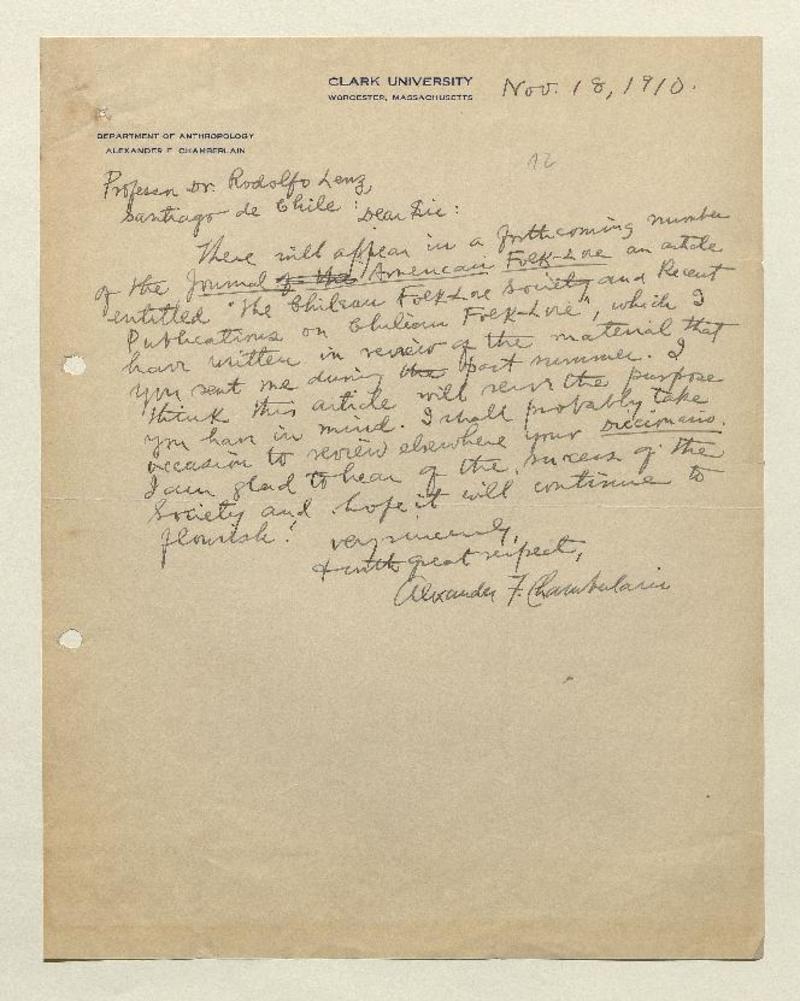 CLARK UNIVERSITY
WORCESTER, MASSACHUSETTS
Nov. 18, 1910.
DEPARTMENT OF ANTHROPOLOGY
ALEXANDER F. CHAMBERLAIN
Professor Dr. Rodolfo Lenz,
Santiago de Chile:
Dear Sir:
There will appear in a forthcoming number
of the Journal of the American Folk-Lore an article
entitled "The Chilean Folk-Lore Society and Recent
Publications on Chilean Folk-Lore", which I
have written in review of the material that
you sent me during the past summer. I
think this article will serve the purpose
you have in mind. I shall probably take
occasion to review elsewhere your Diccionario.
I am glad to hear of the success of the
Society and hope it will continue to
flourish.
Very sincerely,
& with great respect,
Alexander F. Chamberlain